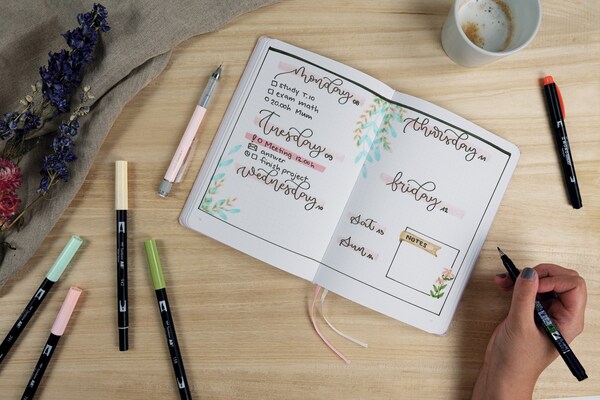 monday 08
study T.10
exam math
20.00h Mum
Tuesday 09
Meeting 15.00h
answer
finish project
wednesday 10
Thursday 11
friday 12
Sat 13
Sun 14
NOTES